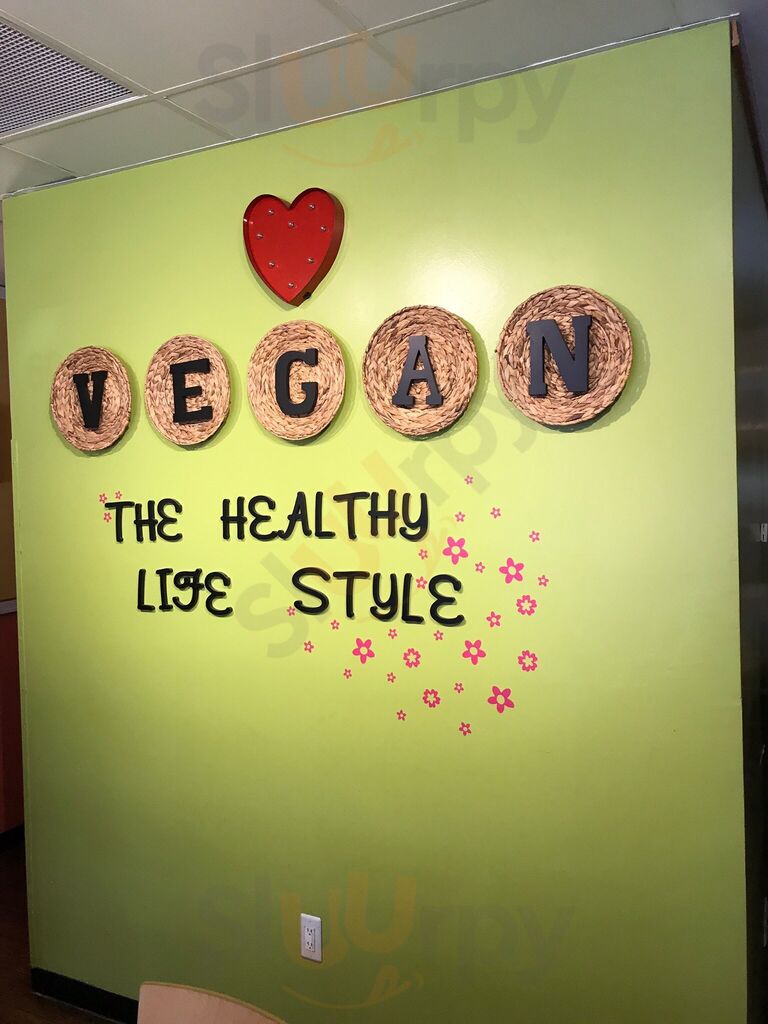 Sluurpy
VEGAN
THE HEALTHY
LIFE STYLE
Sluurpy
Sluurpy